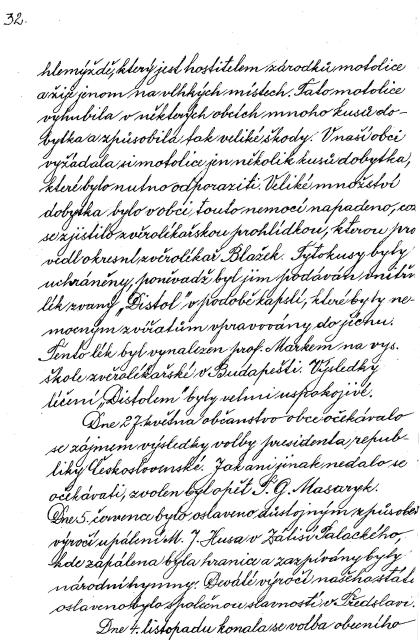 32.
hlemýždě, který jest hostitelem zárodků motolice
a žije jenom na vlhkých místech. Tato motolice
vyhubila v některých obcích mnoho kusů do-
bytka a způsobila tak veliké škody. V naší obci
vyžádala si motolice jen několik kusů dobytka,
které bylo nutno odporaziti. Veliké množství
dobytka bylo v obci touto nemocí napadeno, což
se zjistilo zvěrolékařskou prohlídkou, kterou pro
vedl okresní zvěrolékař Blažek. Tyto kusy byly
uchráněny, poněvadž byl jim podáván vnitřn
lék zvaný „Distol" v podobě kapslí, které byly ne-
mocným zvířatům vpravovány do jícnu.
Tento lék byl vynalezen prof. Markem na vys.
škole zvěrolékařské v Budapešti. Výsledky
léčení „Distolem" byly velmi uspokojivé.
Dne 27. května občanstvo obce očekávalo
se zájmem výsledky volby presidenta repub-
liky Československé. Jak ani jinak nedalo se
očekávati, zvolen byl opět T. G. Masaryk.
Dne 5. července bylo oslaveno důstojným způsobem
výročí upálení M. J. Husa v Zátiší Palackého,
kde zapálena byla hranice a zazpívány byly
národní hymny. Deváté výročí našeho státu
oslaveno bylo společnou slavností v Předslavi.
Dne 4. listopadu konala se volba obecního